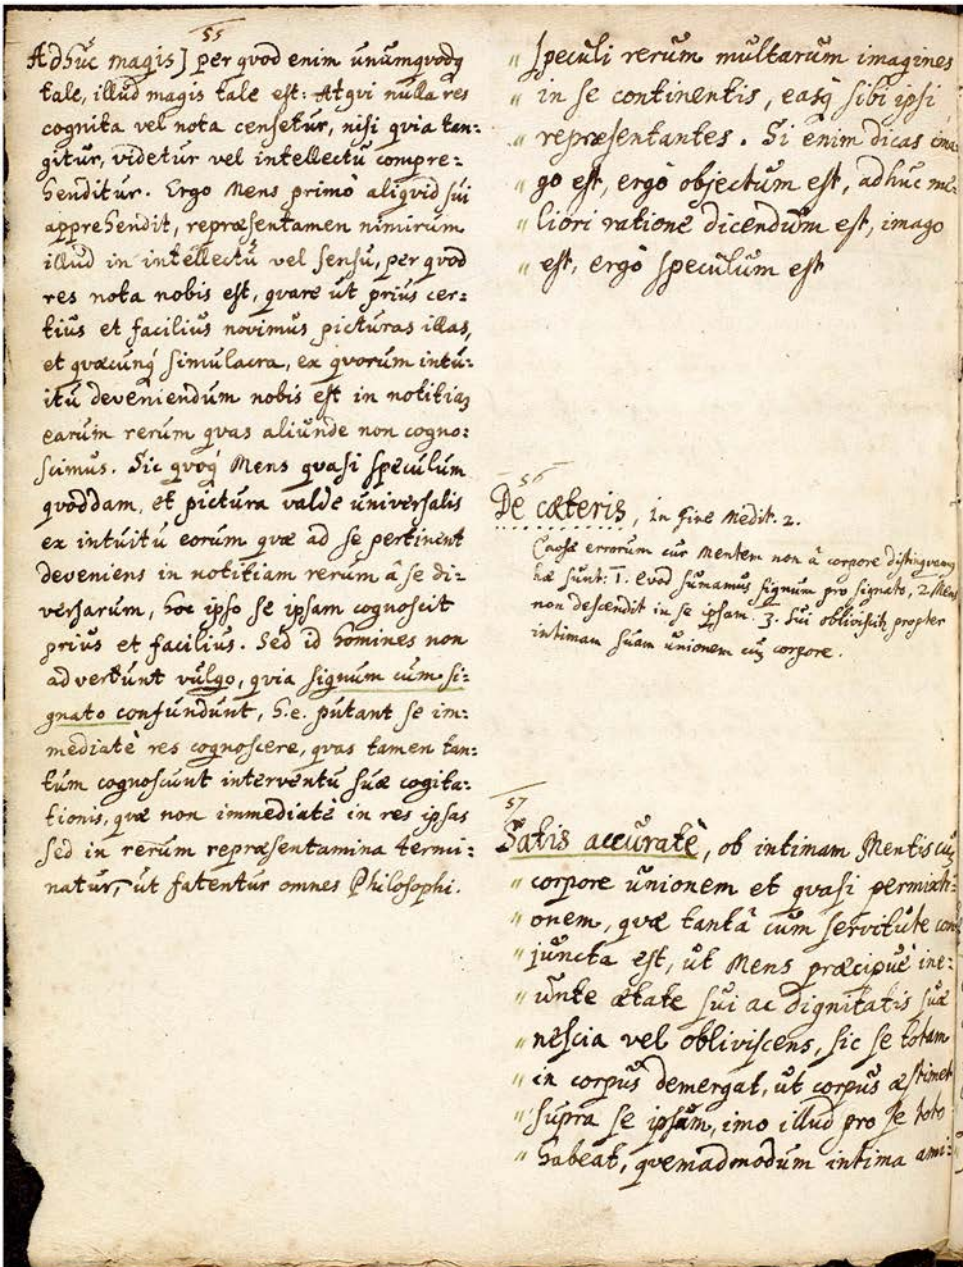 55
Adhuc magis] per qvod enim unumqvodq
tale, illud magis tale est: Atqvi nulla res
cognita vel nota censetur, nisi qvia tan:
gitur, videtur vel intellectu compre:
henditur. Ergo Mens primò aliqvid sui
apprehendit, repræsentamen nimirum
illud in intellectu vel sensu, per qvod
res nota nobis est, qvare ut prius cer:
tius et facilius novimus picturas illas,
et qvæcunq simulacra, ex qvorum intu:
itu deveniendum nobis est in notitiaꝫ
earum rerum qvas aliunde non cogno:
scimus. Sic qvoq Mens qvasi speculum
qvoddam, et pictura valde universalis
ex intuitu eorum qvæ ad se pertinent
deveniens in notitiam rerum â se di:
versarum, hoc ipso se ipsam cognoscit
prius et facilius. Sed id homines non
advertunt vulgo, qvia signum cum si:
gnato confundunt, h.e. putant se im:
mediatè res cognoscere, qvas tamen tan:
tum cognoscunt interventu suæ cogita:
tionis, qvæ non immediatè in res ipsas
sed in rerum repræsentamina termi:
natur, ut fatentur omnes Philosophi.
" speculi rerum multarum imagines
" in se continentis, easq sibi ipsi
" repræsentantes. Si enim dicas ima:
" go est, ergò objectum est, adhuc me:
" liori ratione dicendum est, imago
" est, ergò speculum est
56
De cæteris, in fine Medit. 2.
Causæ errorum cur Mentem non â corpore distinguamus
hæ sunt: 1. Qvod sumamus signum pro signato, 2. Mens
non descendit in se ipsam. 3. Sui obliviscitur propter
intimam suam unionem cuꝫ corpore.
57
Satis accuratè, ob intimam Mentis cuꝫ
" corpore unionem et qvasi permixti:
" onem, qvæ tantâ cum servitute con
" juncta est, ut Mens præcipuè ine:
" unte ætate sui ac dignitatis suæ
" nescia vel obliviscens, sic se totam
" in corpus demergat, ut corpus æstimet
" supra se ipsam, imo illud pro se toto
" habeat, qvemadmodum intima ami: